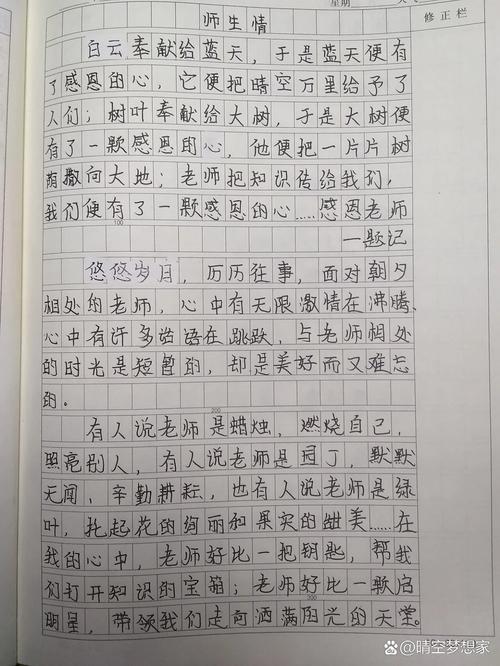 星期
修正栏
师生情
白云奉献给蓝天，于是蓝天便有
了感恩的心，它便把晴空万里给予了
人们；树叶奉献给大树，于是大树便
有了一颗感恩的心，他便把一片片树
荫撒向大地；老师把知识传给我们，
我们便有了一颗感恩的心……感恩老师
100
—题记
悠悠岁月，历历往事，面对朝夕
相处的老师，心中有无限激情在沸腾、
心中有许多话语在跳跃，与老师相处
的时光是短暂的，却是美好而又难忘
的。
200
有人说老师是蜡烛，燃烧自己，
照亮别人，有人说老师是园丁，默默
无闻、辛勤耕耘，也有人说老师是绿
叶，托起花的绚丽和果实的甜美……在
我的心中，老师好比一把钥匙，帮我
们打开知识的宝箱；老师好比一颗启
300
明星，带领我们走向洒满阳光的天堂。
@晴空梦想家